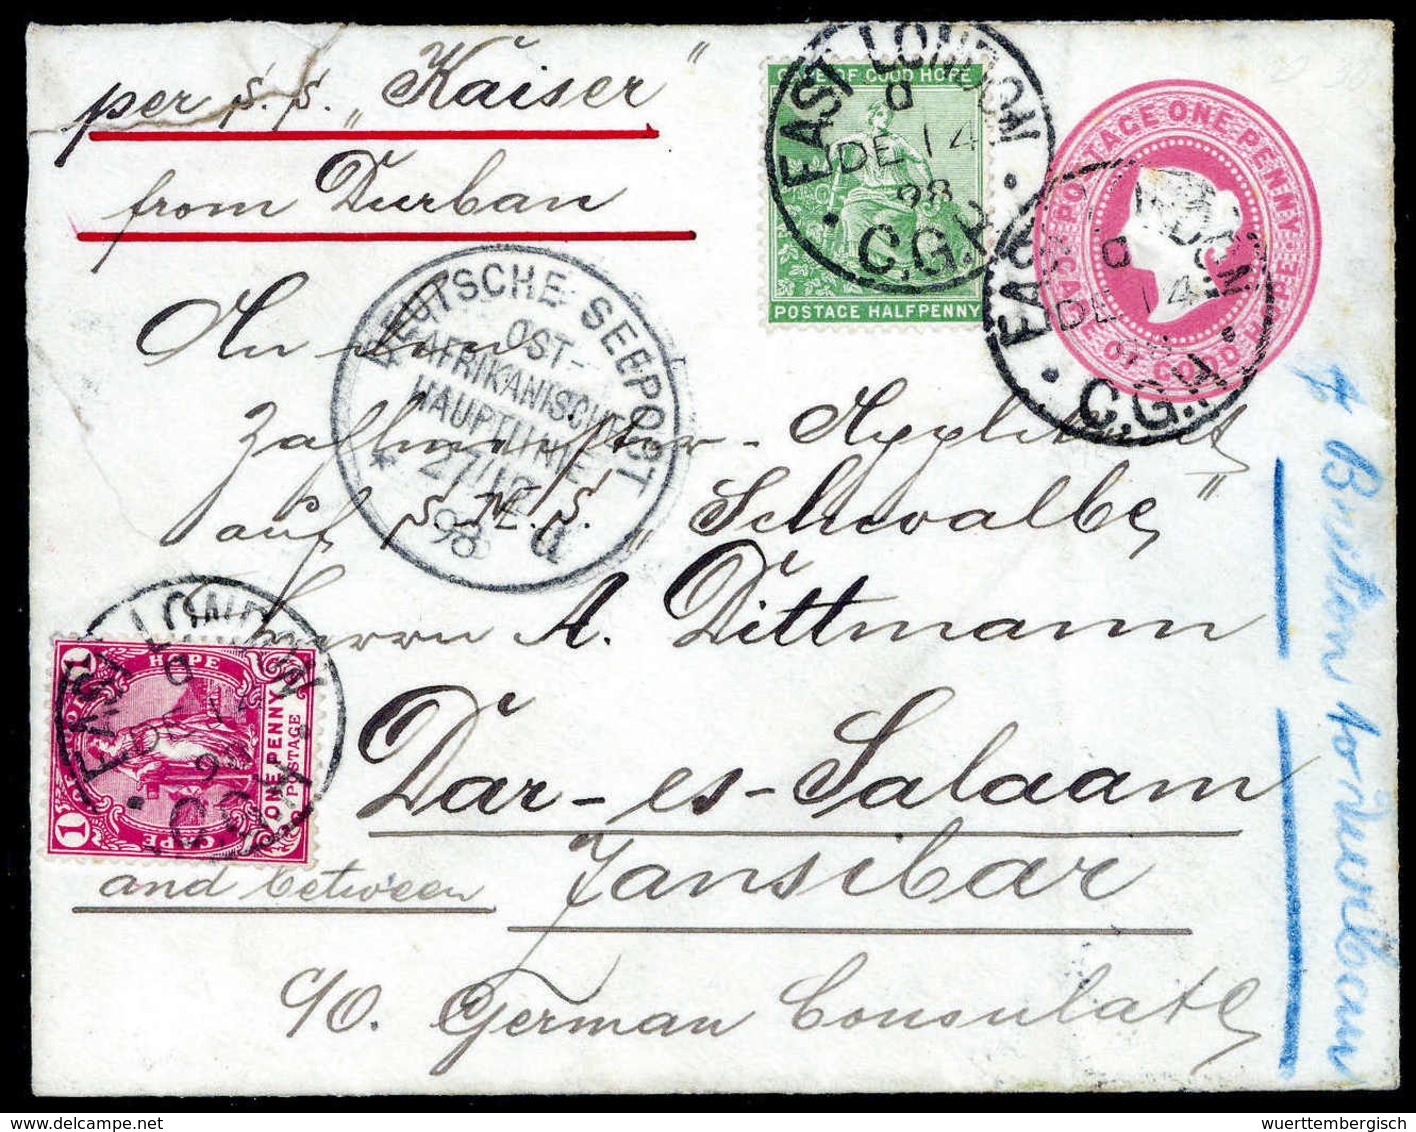 per S.S. „Kaiser"
from Durban
CAPE OF GOOD HOPE
POSTAGE HALFPENNY
EAST LONDON
D
DE 14
98
C.G.H.
CAPE POSTAGE ONE PENNY
OF GOOD HOPE
EAST LONDON
D
DE 14
98
C.G.H.
DEUTSCHE SEEPOST
OST-
AFRIKANISCHE
HAUPTLINIE
27/12
98
d
An den
Zahlmeister-Applikant
auf S.M.S. „Schwalbe"
Herrn A. Dittmann
Dar-es-Salaam
and between Zansibar
c/o. German Consulate
EAST LONDON
D
DE 14
98
C.G.H.
1 HOPE 1
ONE PENNY
POSTAGE
OF GOOD
CAPE
to Durban
wuerttembergisch
delcampe.net